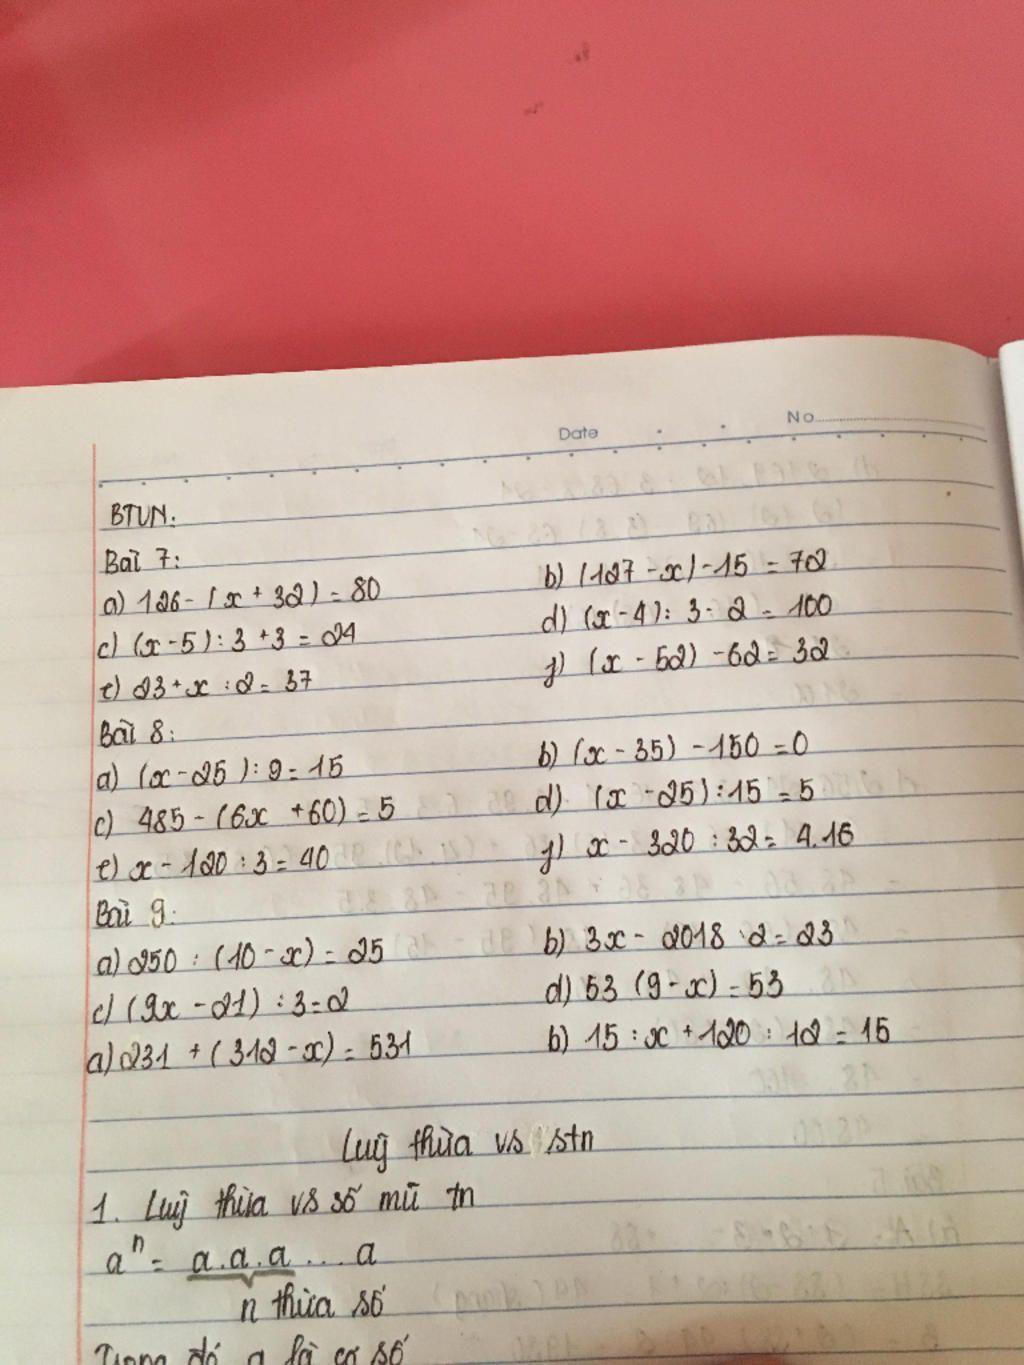 Date No
BTVN:
Bài 7:
a) 126 - (x + 32) = 80 b) (127 - x) - 15 = 72
c) (x - 5) : 3 + 3 = 24 d) (x - 4) : 3 - 2 = 100
e) 23 + x : 2 = 37 f) (x - 52) - 62 = 32
Bài 8:
a) (x - 25) : 9 = 15 b) (x - 35) - 150 = 0
c) 485 - (6x + 60) = 5 d) (x - 25) : 15 = 5
e) x - 120 : 3 = 40 f) x - 320 : 32 = 4.16
Bài 9:
a) 250 : (10 - x) = 25 b) 3x - 2018 : 2 = 23
c) (9x - 21) : 3 = 2 d) 53 (9 - x) = 53
a) 231 + (312 - x) = 531 b) 15 : x + 120 : 12 = 15
Luỹ thừa vs stn
1. Luỹ thừa vs số mũ tn
aⁿ = a.a.a... a
n thừa số
Trong đó a là cơ số